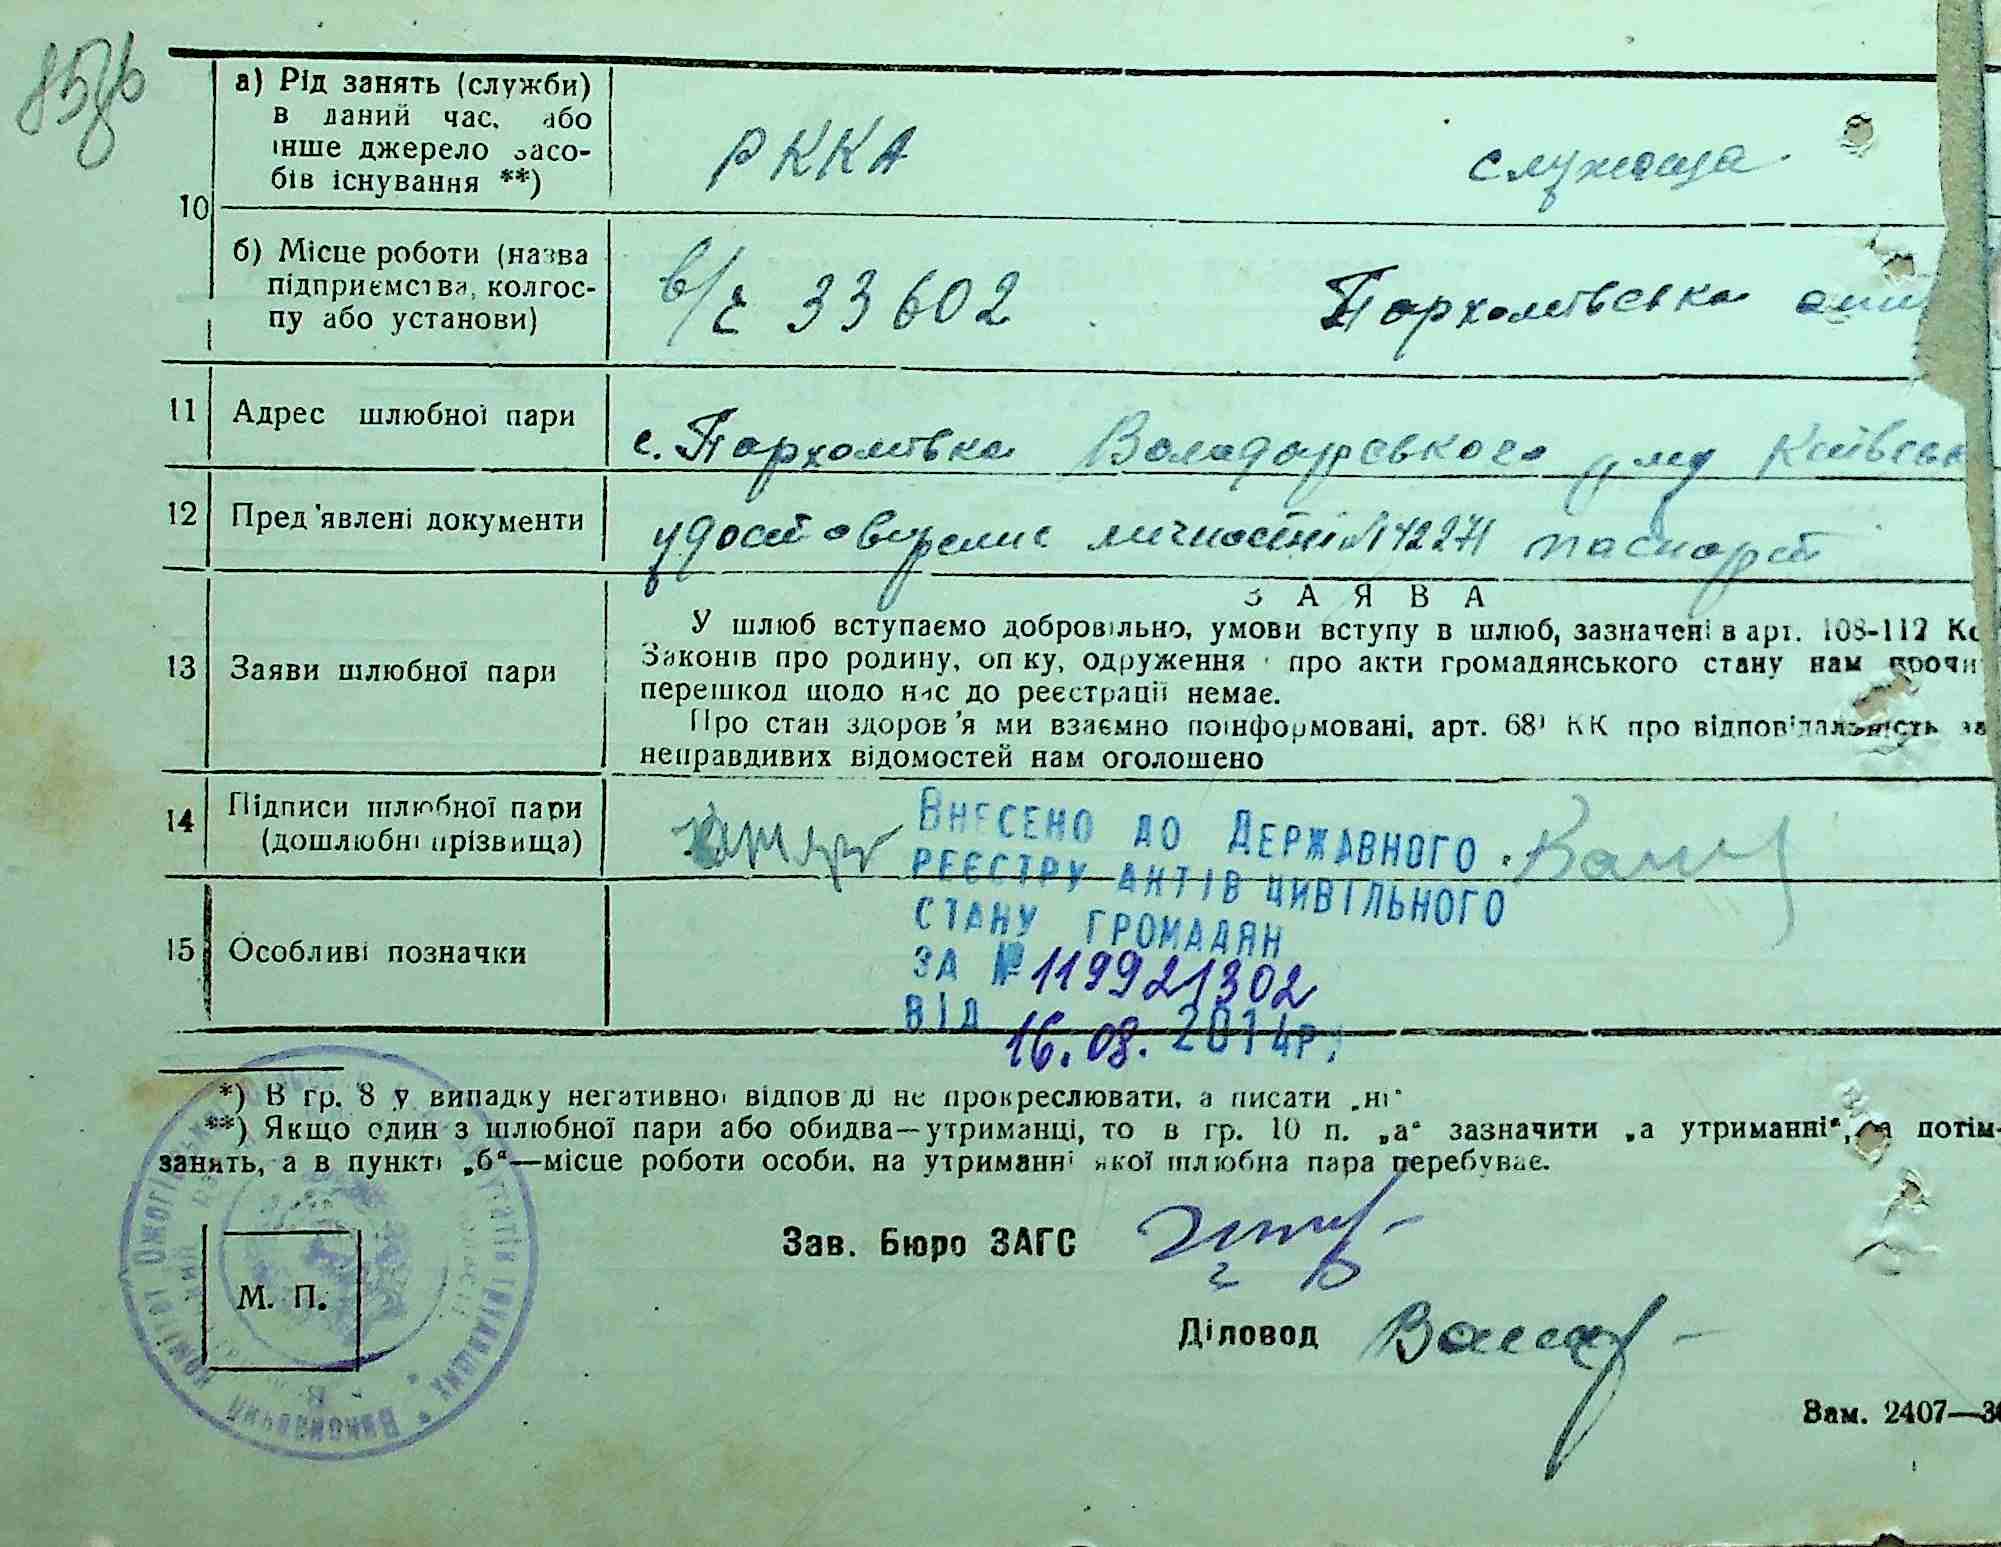 а) Рід занять (служби)
в даний час, або
інше джерело засо-
бів існування **)
РККА
служаща
10
б) Місце роботи (назва
підприємства, колгос-
пу або установи)
в/ч 33602
Пархомівська
11 Адрес шлюбної пари
с. Пархомівка Володарського р-ну Київськ
12 Пред'явлені документи
удостоверение личности паспорт
З А Я В А
У шлюб вступаємо добровільно, умови вступу в шлюб, зазначені в арт. 108-112 Ко
Законів про родину, опіку, одруження і про акти громадянського стану нам прочи
перешкод щодо нас до реєстрації немає.
13 Заяви шлюбної пари
Про стан здоров'я ми взаємно поінформовані, арт. 68¹ КК про відповідальність за
неправдивих відомостей нам оголошено
14 Підписи шлюбної пари
(дошлюбні прізвища)
Внесено до Державного
реєстру актів цивільного
стану громадян
за № 119921302
від 16.08. 2014р.
15 Особливі позначки
*) В гр. 8 у випадку негативної відповіді не прокреслювати, а писати „ні"
**) Якщо один з шлюбної пари або обидва—утриманці, то в гр. 10 п. „а" зазначити „а утриманні", а потім
занять, а в пункті „б"—місце роботи особи, на утриманні якої шлюбна пара перебуває.
Зав. Бюро ЗАГС
М. П.
Діловод
Зам. 2407—3